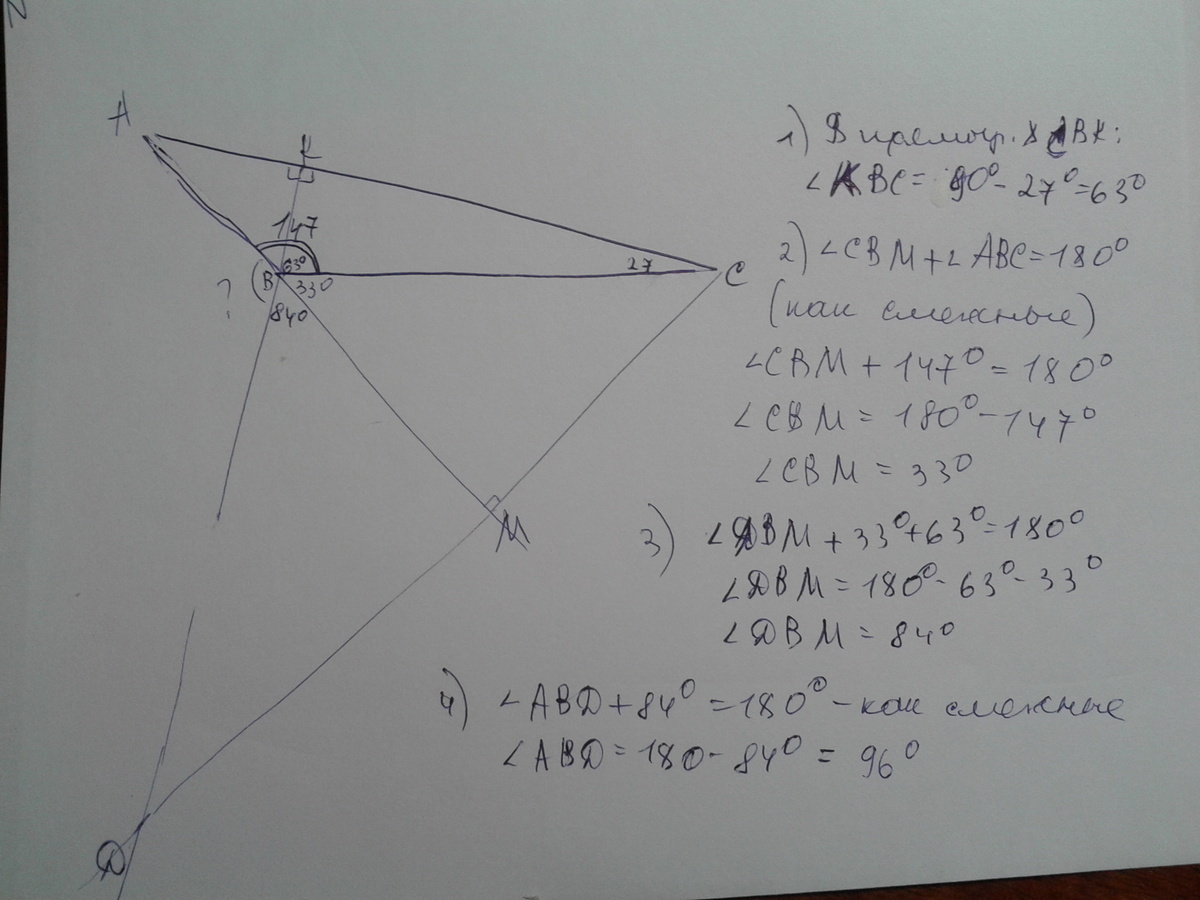 A
K
147
63°
B
33°
27
C
?
84°
M
D
1) В прямоуг. Δ CBK:
∠KBC = 90° - 27° = 63°
2) ∠CBM + ∠ABC = 180°
(как смежные)
∠CBM + 147° = 180°
∠CBM = 180° - 147°
∠CBM = 33°
3) ∠DBM + 33° + 63° = 180°
∠DBM = 180° - 63° - 33°
∠DBM = 84°
4) ∠ABD + 84° = 180° - как смежные
∠ABD = 180 - 84° = 96°